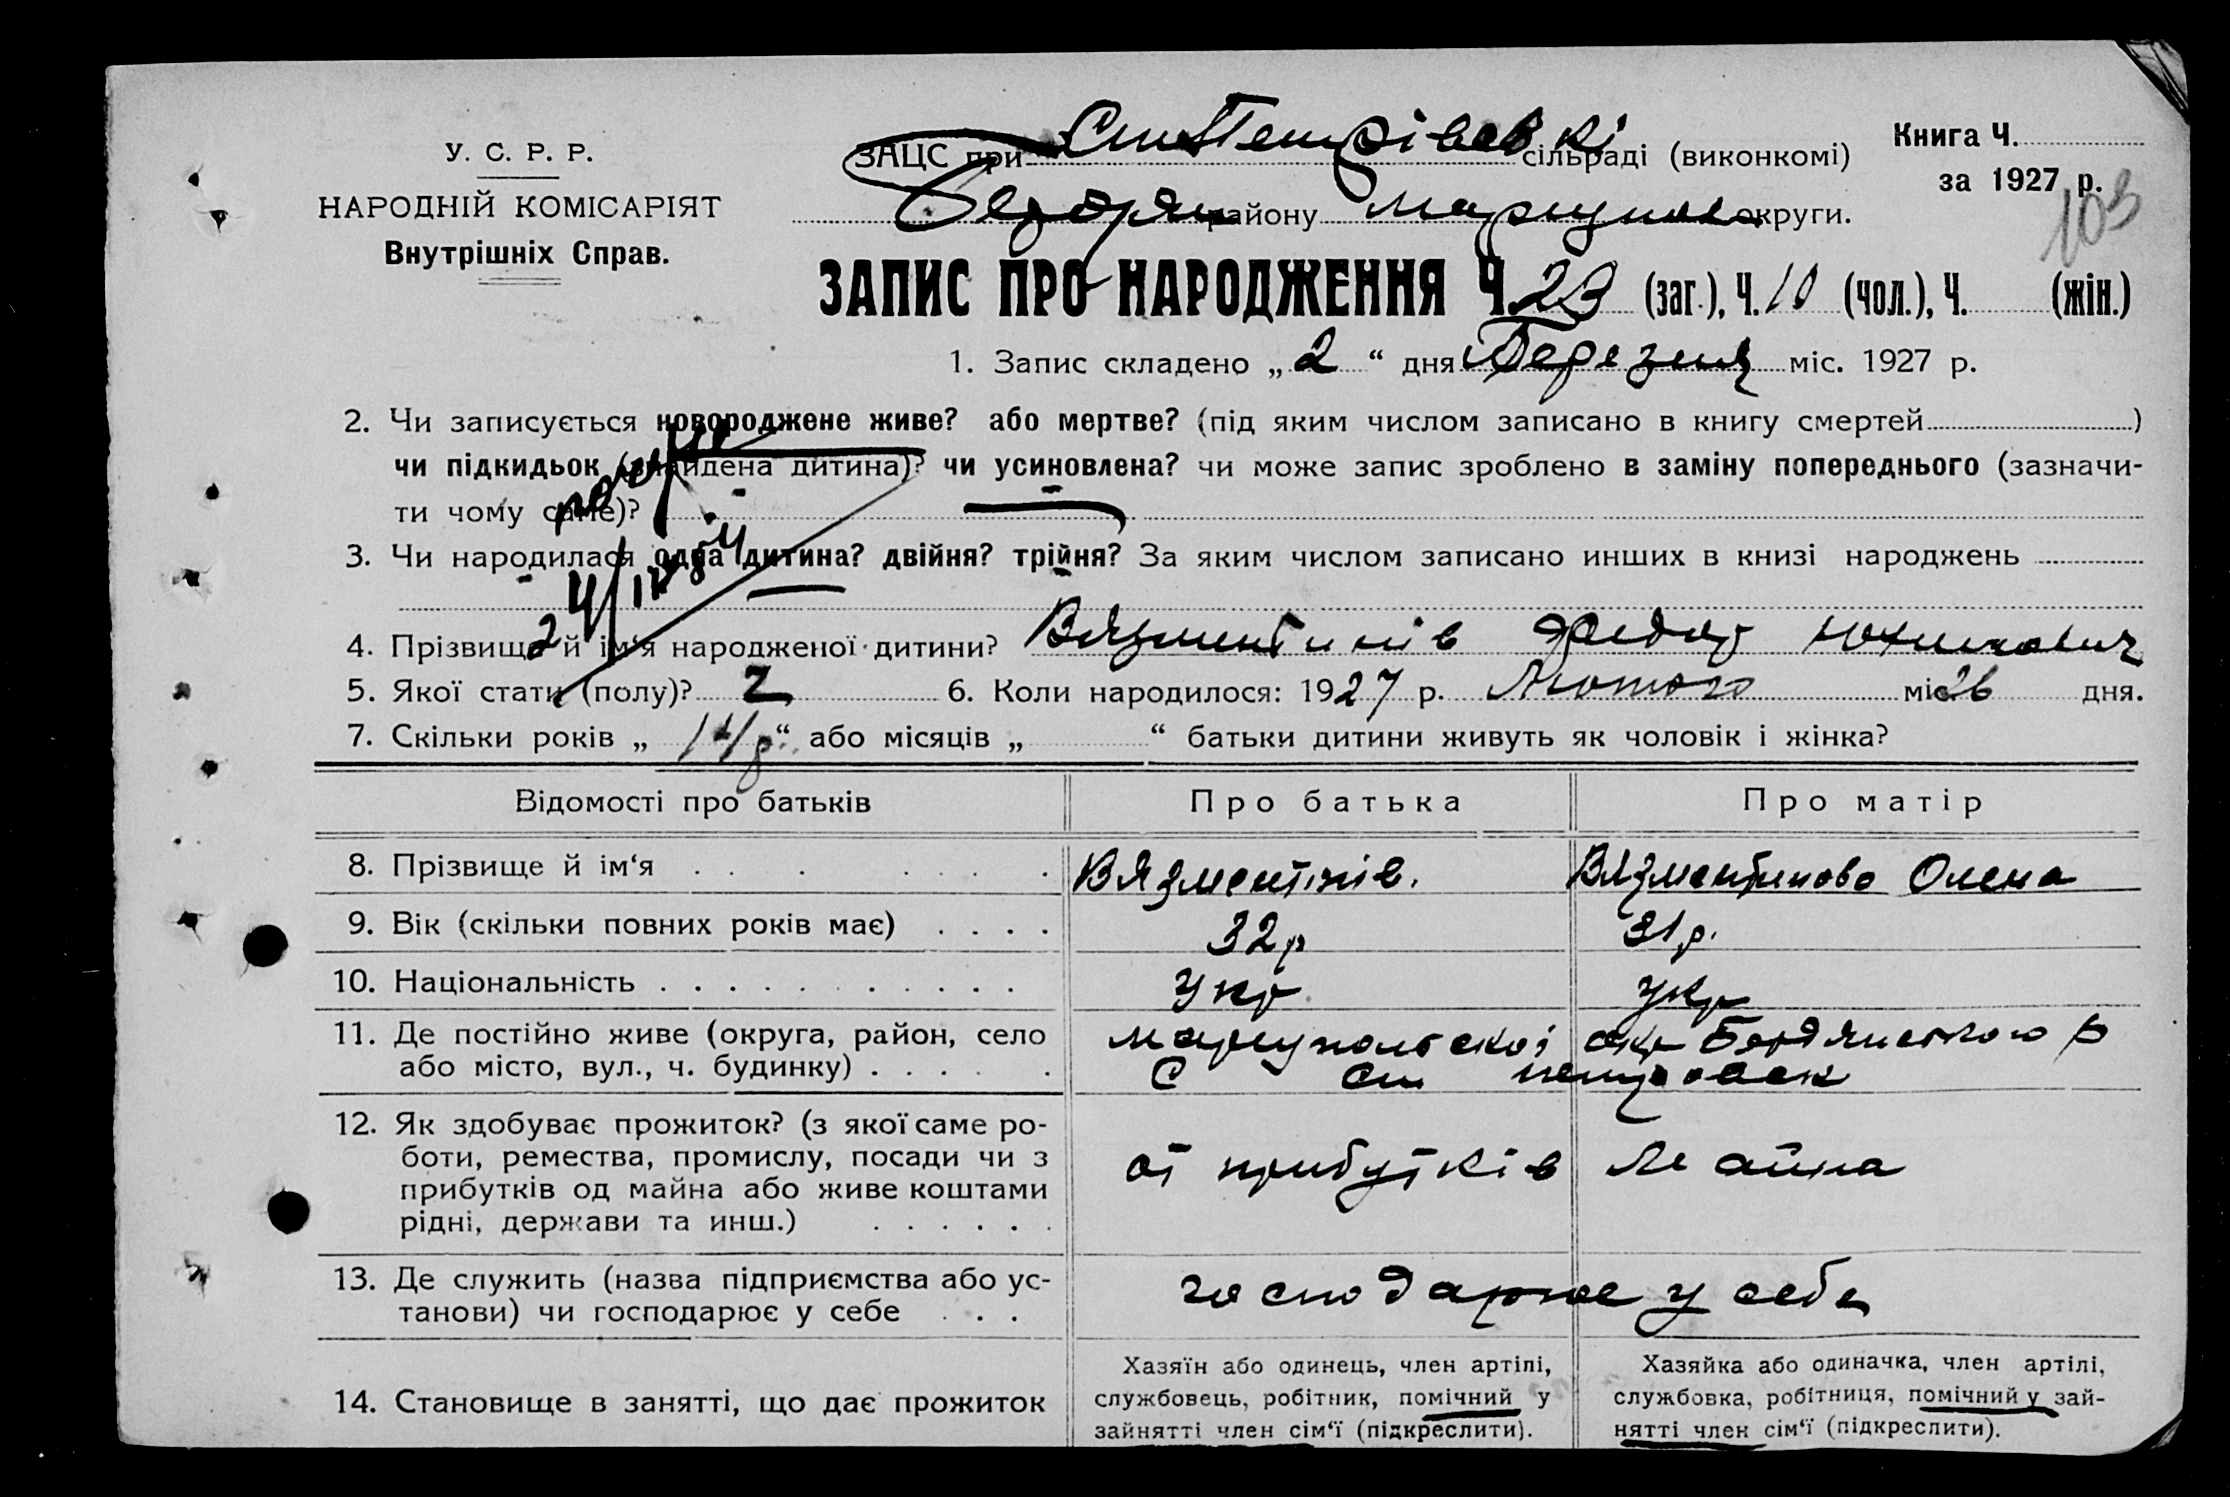 У. С. Р. Р.
НАРОДНІЙ КОМІСАРІЯТ
Внутрішніх Справ.
ЗАЦС при СтПетрівській сільраді (виконкомі)
Бердян району Мариупол округи.
Книга Ч.
за 1927 р.
103
ЗАПИС ПРО НАРОДЖЕННЯ Ч. 23 (заг.), Ч. 10 (чол.), Ч. (жін.)
1. Запис складено „ 2 “ дня Березня міс. 1927 р.
2. Чи записується новороджене живе? або мертве? (під яким числом записано в книгу смертей )
чи підкидьок (знайдена дитина)? чи усиновлена? чи може запис зроблено в заміну попереднього (зазначи-
ти чому саме)?
3. Чи народилася одна дитина? двійня? трійня? За яким числом записано инших в книзі народжень
4. Прізвище й ім‘я народженої дитини? Вязментинів Федор
5. Якої стати (полу)? 2 6. Коли народилося: 1927 р. Лютого міс. 26 дня.
7. Скільки років „ “ або місяців „ “ батьки дитини живуть як чоловік і жінка?
Відомості про батьків Про батька Про матір
8. Прізвище й ім‘я Вязментінів. Вязментинова Олена
9. Вік (скільки повних років має) 32 р 31 р.
10. Національність Укр Укр
11. Де постійно живе (округа, район, село Мариупольскої окр Бердянського р
або місто, вул., ч. будинку) С Ст петровск
12. Як здобуває прожиток? (з якої саме ро-
боти, ремества, промислу, посади чи з от прибутків Майна
прибутків од майна або живе коштами
рідні, держави та инш.)
13. Де служить (назва підприємства або ус- господарює у себе
танови) чи господарює у себе
14. Становище в занятті, що дає прожиток
Хазяїн або одинець, член артілі,
службовець, робітник, помічний у
зайнятті член сім‘ї (підкреслити).
Хазяйка або одиначка, член артілі,
службовка, робітниця, помічний у зай-
нятті член сім‘ї (підкреслити).